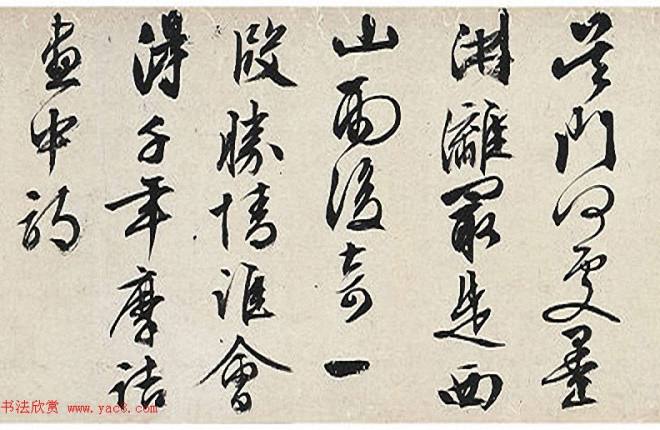 吳門何處墨
淋灕最是西
山雨後奇一
段勝情誰會
得千年摩詰
畫中詩
书法欣赏 www.yac8.com